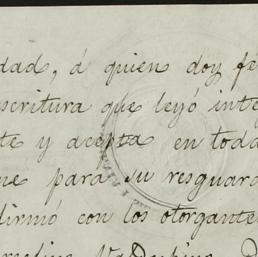 dad, á quien doy fé
scritura que leyó inte
te y acepta en toda
ne para su resguard
firmó con los otorgante